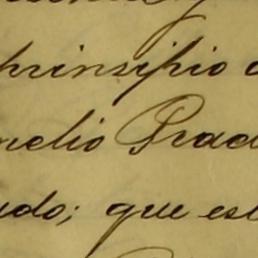 prinsipio
nelio Prad
udo; que est